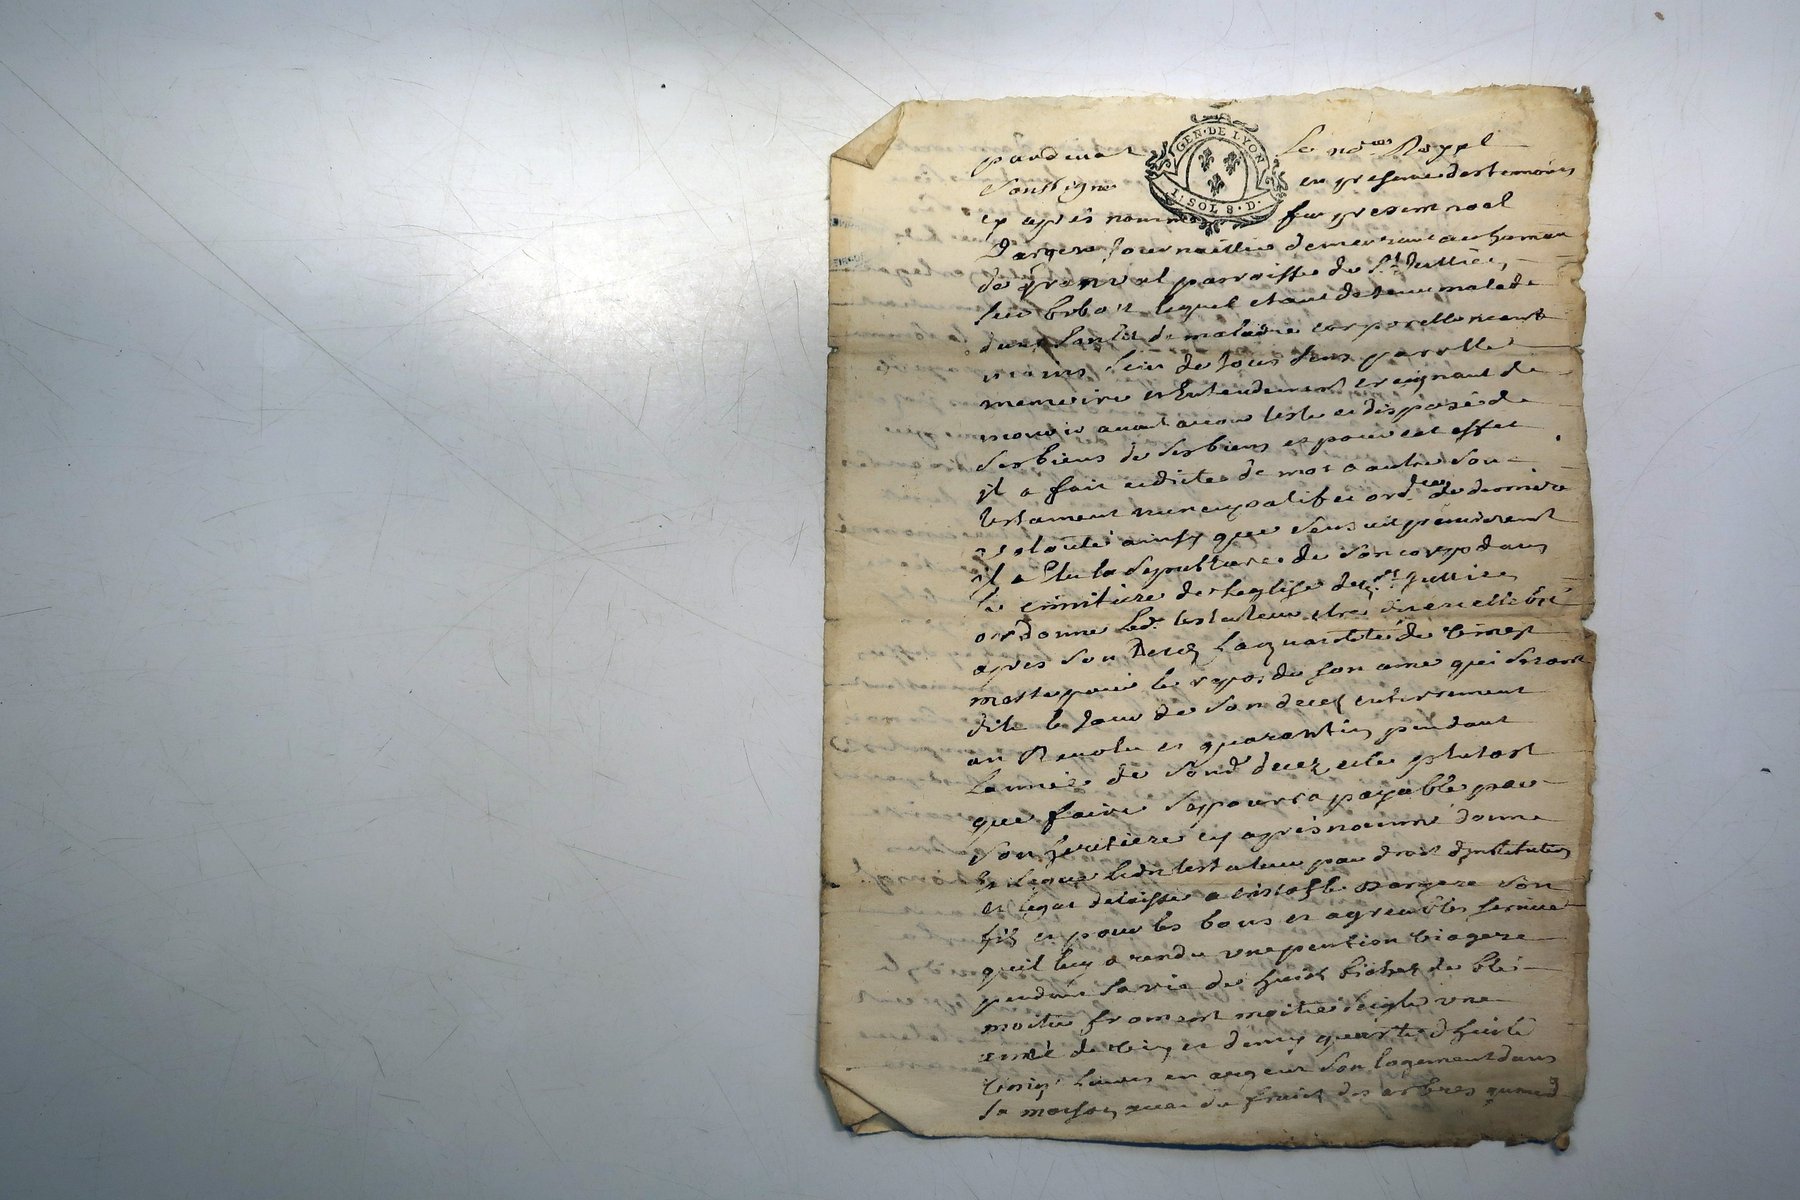 GEN · DE LYON
1 · SOL 8 · D ·
pardevat Le no.re Royal
soussigné en presence des temoins
cy après nommés fut present noel
journaillier demeurant au hameau
de parroisse de St
lequel étant detenu malade
dans un lit de maladie corporelle
sain de tous sens parolle
memoire et Entendement craignant de
mourir avant avoir testé et disposé de
ses biens de ses biens et pour cet effet
il a fait et dicté de mot a autre son
testament nuncupatif et ord.ce de derniere
volonté ainsy que sensuit premierement
il a Elu la sepulture de son corp dans
le cimitiere de leglise de St
ordonne led. testateur etre dit et celebré
apres son Decez la quantité de
messe pour le repos de son ame qui seront
dite le jour de son decez enterrement
an Revolu et quarantin pendant
lannée de sond decez et le plutost
que faire se pourra payable par
son heritiere cy apres nommé donne
et legue ledit testateur par droit dinstitution
et legat delaisse a son
fils et pour les bons et agreables service
quil luy a rendu une pention viagere
pendant sa vie de huit bichet de blé
moitié froment moitié seigle une
année de vin et demy quarte dhuile
livres en argent son logement dans
sa maison avec du fruit des arbres